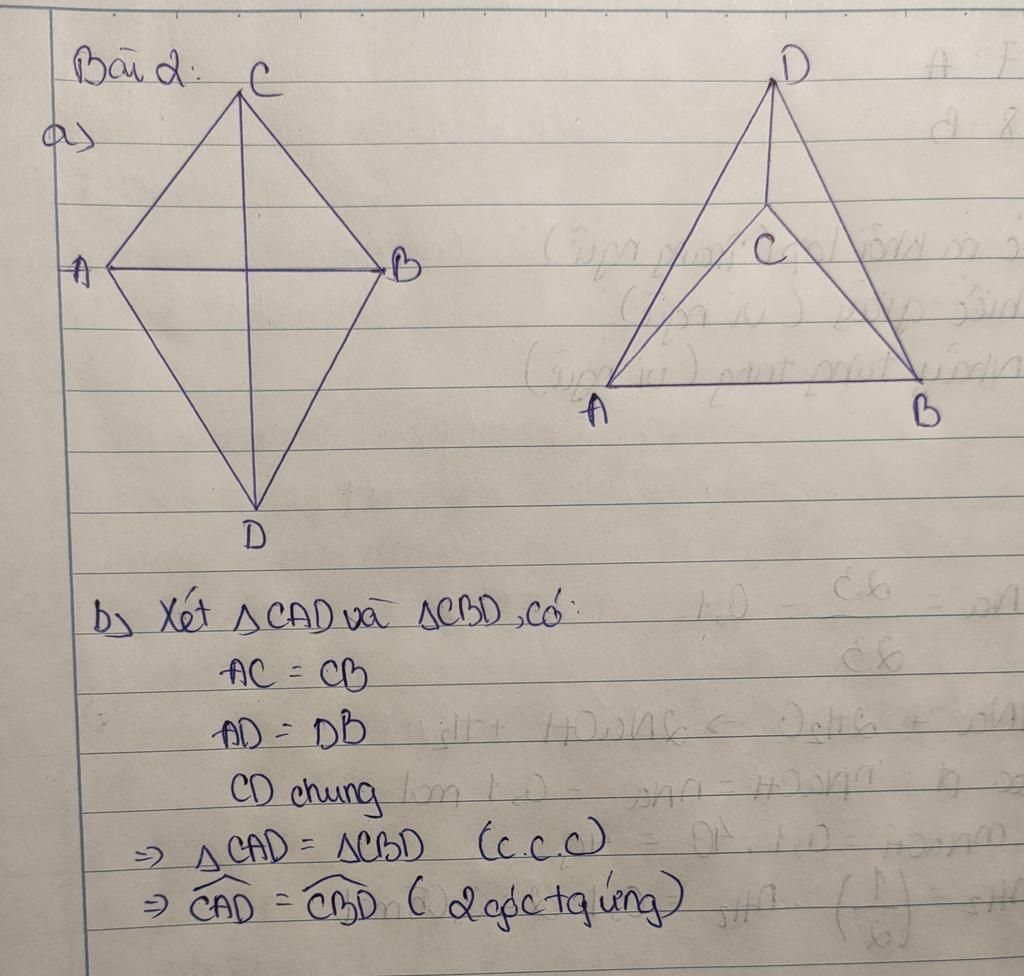 Bài 2:
a)
C
A
B
D
D
C
A
B
b) Xét △CAD và △CBD, có:
AC = CB
AD = DB
CD chung
⇒ △CAD = △CBD (c.c.c)
⇒ \widehat{CAD} = \widehat{CBD} (2 góc tg ứng)